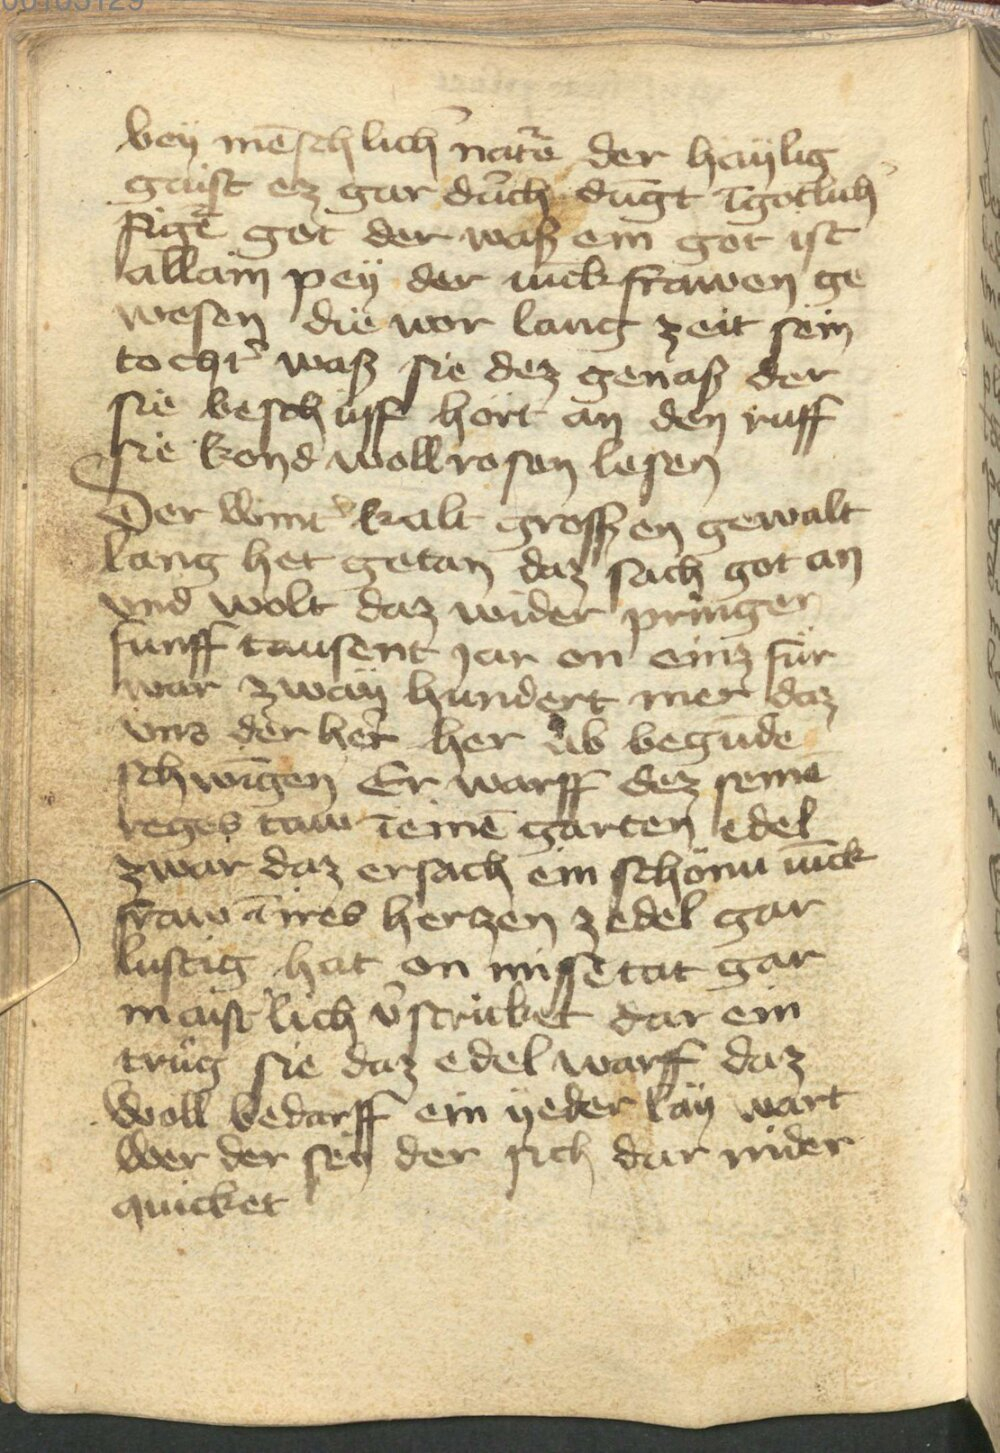 00105129
bey mēschlich' natᷣe der haÿlig
gaist ez gar důrch dūgt īgotlich'
figᷣ got der waß ein got ist
allain peÿ der iūckfrawen ge
wesen die vor lang zeit sein
tocht' waß sie dez genaß der
sie beschuff hört an den ruff
sie kond woll rosen lesen
Der wint' kalt grossen gewalt
lang het getan daz sach got an
vnd wolt daz wider pringen
funff tausent jar on einz für
war zwaÿ hundert mer daz
vns der her' her ab begūde
schwīgen Er warff dez seinē
reges taw ī einē garten edel
zwar daz ersach ein schönu iūck
fraw ī ires herzen zedel gar
lustig hat on missetat gar
maist'lich v'stricket dar ein
trůg sie daz edel warff daz
woll bedarff ein ÿeder laÿ wart
wer der seÿ der sich dar nider
quicket